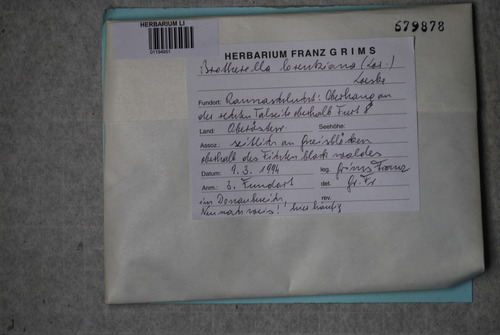 HERBARIUM LI
01194951
579878
HERBARIUM FRANZ GRIMS
Brotherella lorentziana (Lor.)
Loeske
Fundort: Rannaschlucht: Oberhang an
der rechten Talseite oberhalb Furt 8
Land: Oberösterr Seehöhe:
Assoz.: seitlich an Gneisblöcken
oberhalb des Fichten blockwaldes
Datum: 9. 3. 1994 leg. Grims Franz
Anm.: 3. Fundort det. Gr. Fr.
im Donaubereich, rev.
Neunachweis! hier häufig